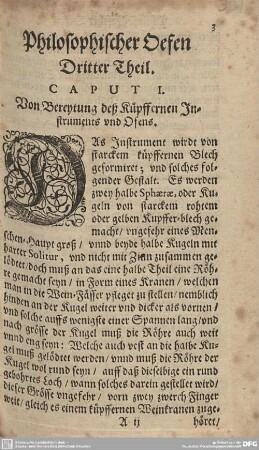 3
Philosophischer Oefen
Dritter Theil.
CAPUT I.
Von Bereytung deß Küpffernen In-
struments vnd Ofens.
DAs Instrument wirdt von
starckem küpffernen Blech
geformiret; vnd solches fol-
gender Gestalt. Es werden
zwey halbe Sphæræ, oder Ku-
geln von starckem rohtem
oder gelben Kupffer-blech ge-
macht/ vngefehr eines Men-
schen-Haupt groß/ vnnd beyde halbe Kugeln mit
harter Solitur, vnd nicht mit Zinn zusammen ge-
lödtet/ doch muß an das eine halbe Theil eine Röh-
re gemacht seyn/ in Form eines Kranen/ welchen
man in die Wein-Fässer pfleget zu stellen/ nemblich
hinden an der Kugel weiter vnd dicker als vornen/
vnd solche auffs wenigste einer Spannen lang/ vnd
nach grösse der Kugel muß die Röhre auch weit
vnd eng seyn: Welche auch vest an die halbe Ku-
gel muß gelödtet werden/ vnnd muß die Röhre der
Kugel wol rund seyn/ auff daß dieselbige ein rund
gebohrtes Loch/ wann solches darein gestellet wird/
dieser Grösse vngefehr/ vorn zwey zwerch Finger
weit/ gleich es einem küpffernen Weinkranen zuge-
A ij höret/
DFG